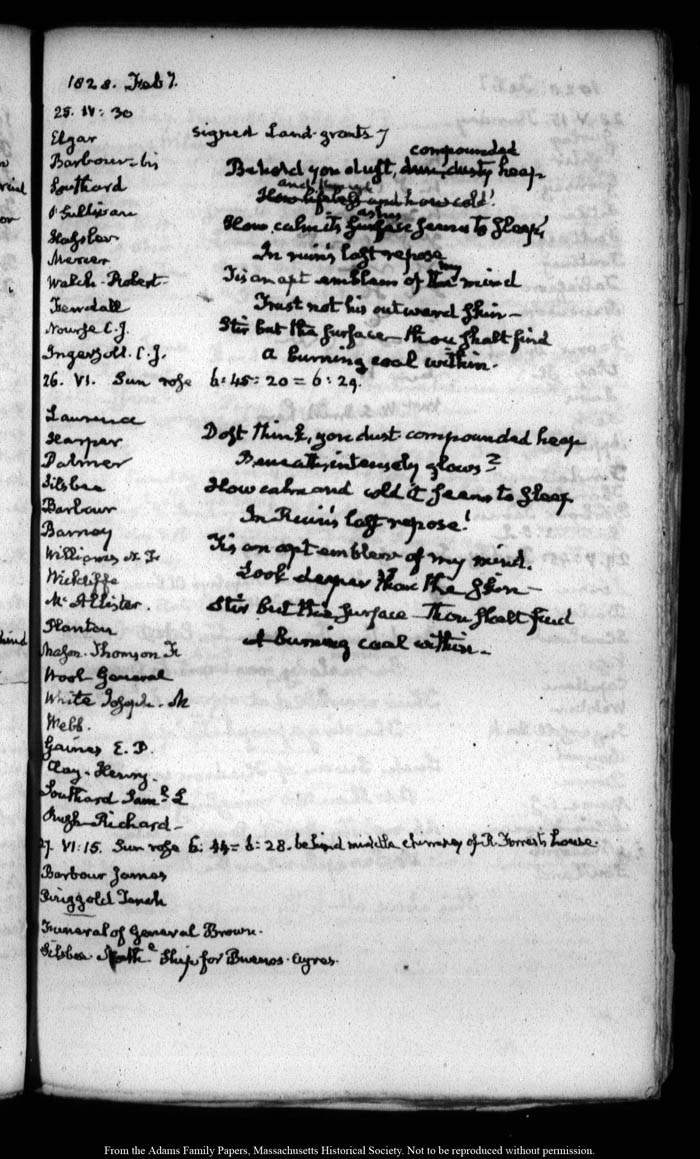 1828. Feb 7.
25. IV: 30
Elgar
signed Land-grants 7
Barbour-bis
compounded
Behold yon dust, dun, dusty heap
Southard
and
How lifeless and how cold!
O'Sullivan
ashes
How calm its surface seems to sleep,
Hassler
Mercer
In ruin's last repose
Walsh-Robert
my
Tis an apt emblem of the mind
Trust not his outward skin—
Nourse C. J.
Stir but the surface—thou shalt find
Ingersoll. C. J.
a burning coal within.
26. VI. Sun rose 6:45:20 = 6:29.
Laurence
Harper
Dost think, yon dust-compounded heap
Palmer
Beneath, intensely glows?
Silsbee
How calm and cold it seems to sleep
Barbour
In Ruin's last repose!
Barney
Tis an apt emblem of my mind.
Williams
Look deeper than the skin—
Wickliffe
McAllister.
Stir but the surface—Thou shalt find
Stanton
A burning coal within—
Mason. Thomson Jr
Wool General
White Joseph. M
Webb.
Gaines E. P.
Clay-Henry
Southard Saml. L
Rush-Richard—
27. VI:15. Sun rose 6:44= 6:28. behind middle chimney of R. Forrest's house.
Barbour James
Ringgold Tench
Funeral of General Brown.
Silsbee. Ship for Buenos-Ayres.
From the Adams Family Papers, Massachusetts Historical Society. Not to be reproduced without permission.